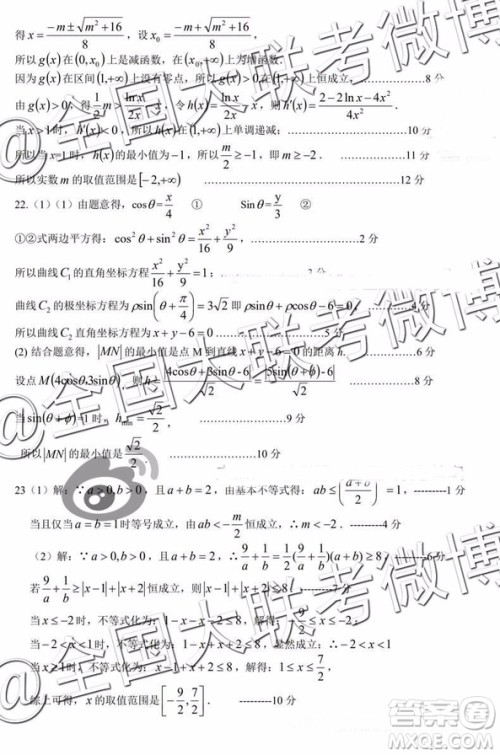 得 x = (-m ± √(m²+16))/8 ，设 x₀ = (-m + √(m²+16))/8 ，
所以 g(x) 在 (0, x₀) 上是减函数，在 (x₀, +∞) 上为增函数．
因为 g(x) 在区间 (1,+∞) 上没有零点，所以 g(x) > 0 在 (1,+∞) 上恒成立， 8 分
由 g(x) > 0，得
所以 h(x) 在 (1,+∞) 上单调递减； 10 分
所以当 x=1 时，h(x) 的最小值为 -1，所以 m/2 ≥ -1，即 m ≥ -2．
所以实数 m 的取值范围是 [-2,+∞) 12 分
22.（1）(1) 由题意得，cosθ = x/4 ① Sinθ = y/3 ②
①②式两边平方得：cos²θ + sin²θ = x²/16 + y²/9 ， 2 分
所以曲线 C₁ 的直角坐标方程 x²/16 + y²/9 = 1；
曲线 C₂ 的极坐标方程为 ρsin(θ + π/4) = 3√2 即 ρsinθ + ρcosθ - 6 = 0 4 分
所以曲线 C₂ 直角坐标方程为 x + y - 6 = 0
(2) 结合题意得，|MN| 的最小值是点 M 到直线 x + y - 6 = 0 的距离 h．
设点 M(4cosθ, 3sinθ)，则 h = |4cosθ + 3sinθ - 6|
当 sin(θ + φ) = 1 时，h min = √2/2 9 分
所以 |MN| 的最小值是 √2/2 10 分
23（1）解：∵ a > 0, b > 0，且 a + b = 2，由基本不等式得：ab ≤ ((a+b)/2)² = 1，---------1 分
当且仅当 a = b = 1 时等号成立，由 ab < -m/2 恒成立，∴ m < -2 ---------4 分
（2）解：∵ a > 0, b > 0，且 a + b = 2，∴ 9/a + 1/b = 1/2(9/a + 1/b)(a + b) ≥ 8，-------6 分
若 9/a + 1/b ≥ |x-1| + |x+2| 恒成立，则 |x-1| + |x+2| ≤ 8，
当 x ≤ -2 时，不等式化为：1-x-x-2 ≤ 8，解得：-9/2 ≤ x ≤ -2，
当 -2 < x < 1 时，不等式化为：1-x+x+2 ≤ 8，显然成立：-2 < x < 1
当 x ≥ 1 时，不等式化为：x-1+x+2 ≤ 8，解得：1 ≤ x ≤ 7/2，
综上可得，x 的取值范围是 [-9/2, 7/2]． ---------10 分
@全国大联考微博
@全国大联考微博
@全国大联考微博
答案圈
MXQE.COM